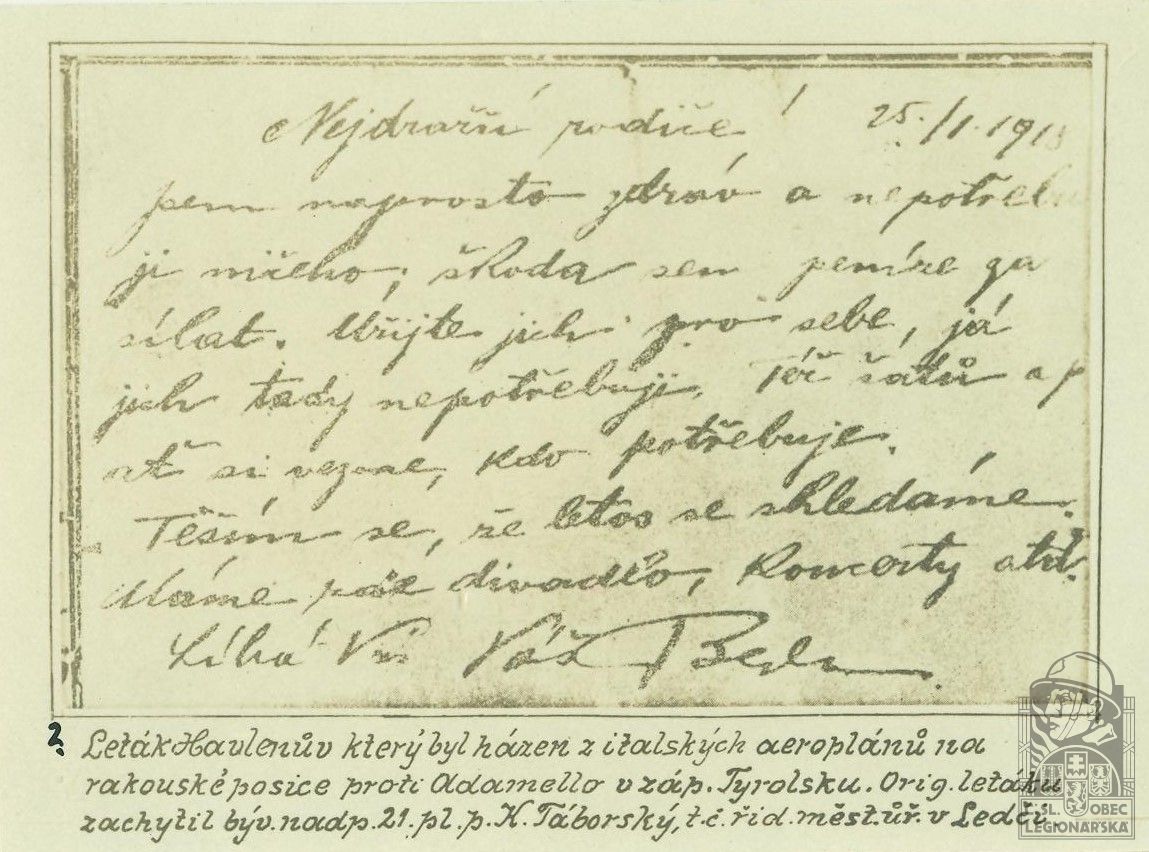 Nejdražší rodiče! 25./1. 191
jsem naprosto zdráv a nepotřebu
ji ničeho, škoda sem peníze za
sílat. Užijte jich pro sebe, já
jich tady nepotřebuji. Též šatů a p
ať si vezme, kdo potřebuje.
Těším se, že letos se shledáme.
Máme zde divadlo, koncerty atd.
Líbá Vás Váš
2. Leták Havlenův který byl házen z italských aeroplánů na
rakouské posice proti Adamello v záp. Tyrolsku. Orig. letáku
zachytil býv. nadp. 21. pl. p. K. Táborský, t. č. říd. měst. úř. v Ledči.
ČSL. OBEC
LEGIONÁŘSKÁ